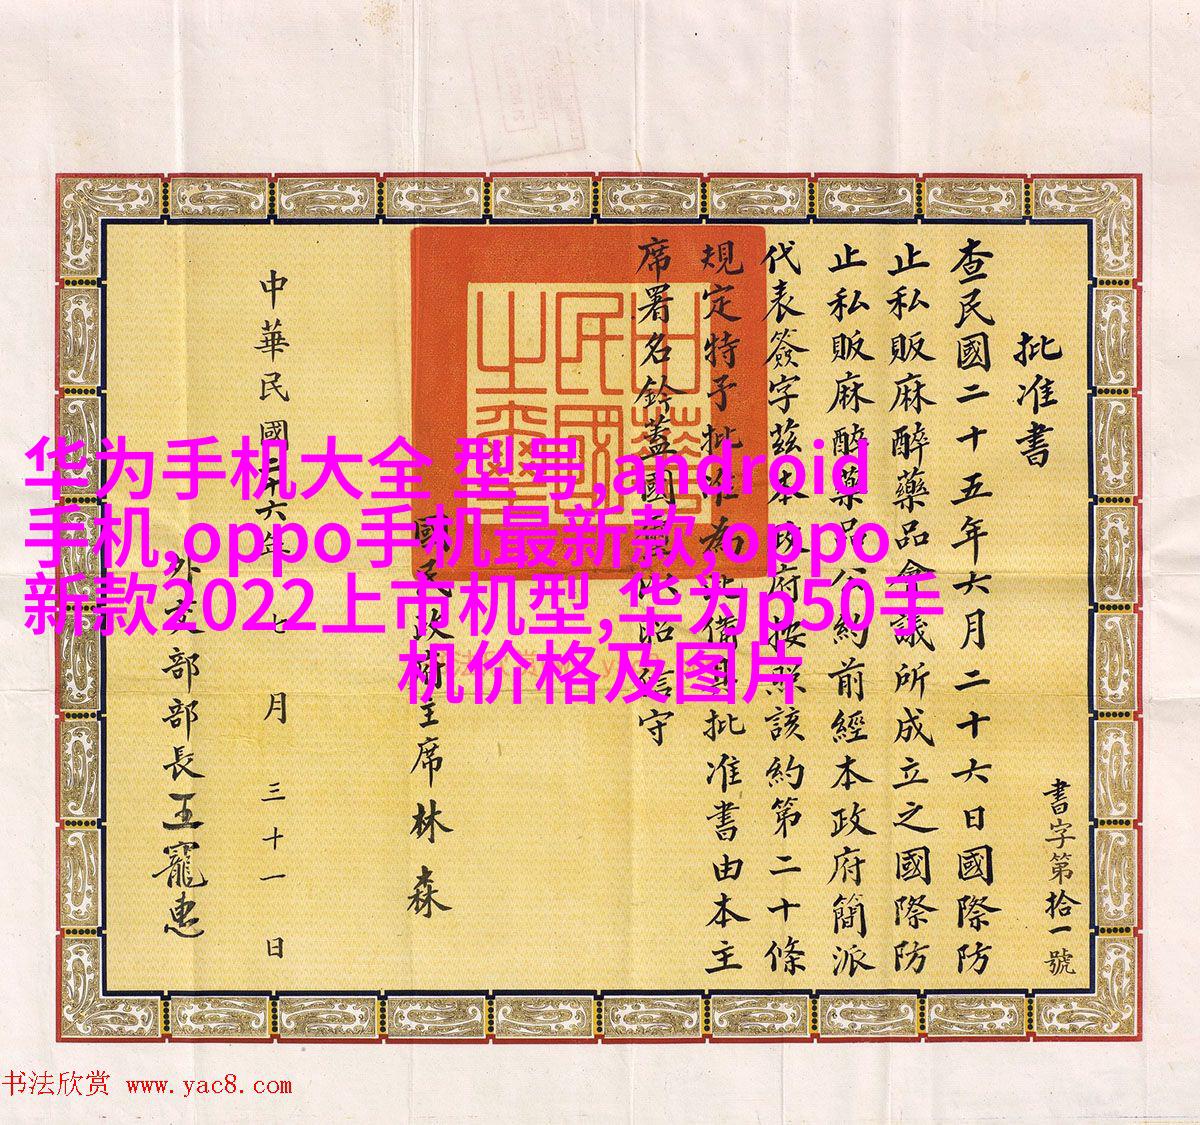 华为手机大全 型号,android
手机,oppo手机最新款,oppo
新款2022上市机型,华为p50手
机价格及图片
批准書
書字第拾一號
查民國二十五年六月二十六日國際防
止私販麻醉藥品會議所成立之國際防
止私販麻醉藥品公約前經本政府簡派
代表簽字茲本政府按照該約第二十條
規定特予批准為此備具批准書由本主
席署名鈐蓋國璽以昭信守
中華民國之璽
國民政府主席林森
中華民國二十六年七月三十一日
外交部部長王寵惠
书法欣赏 www.yac8.com